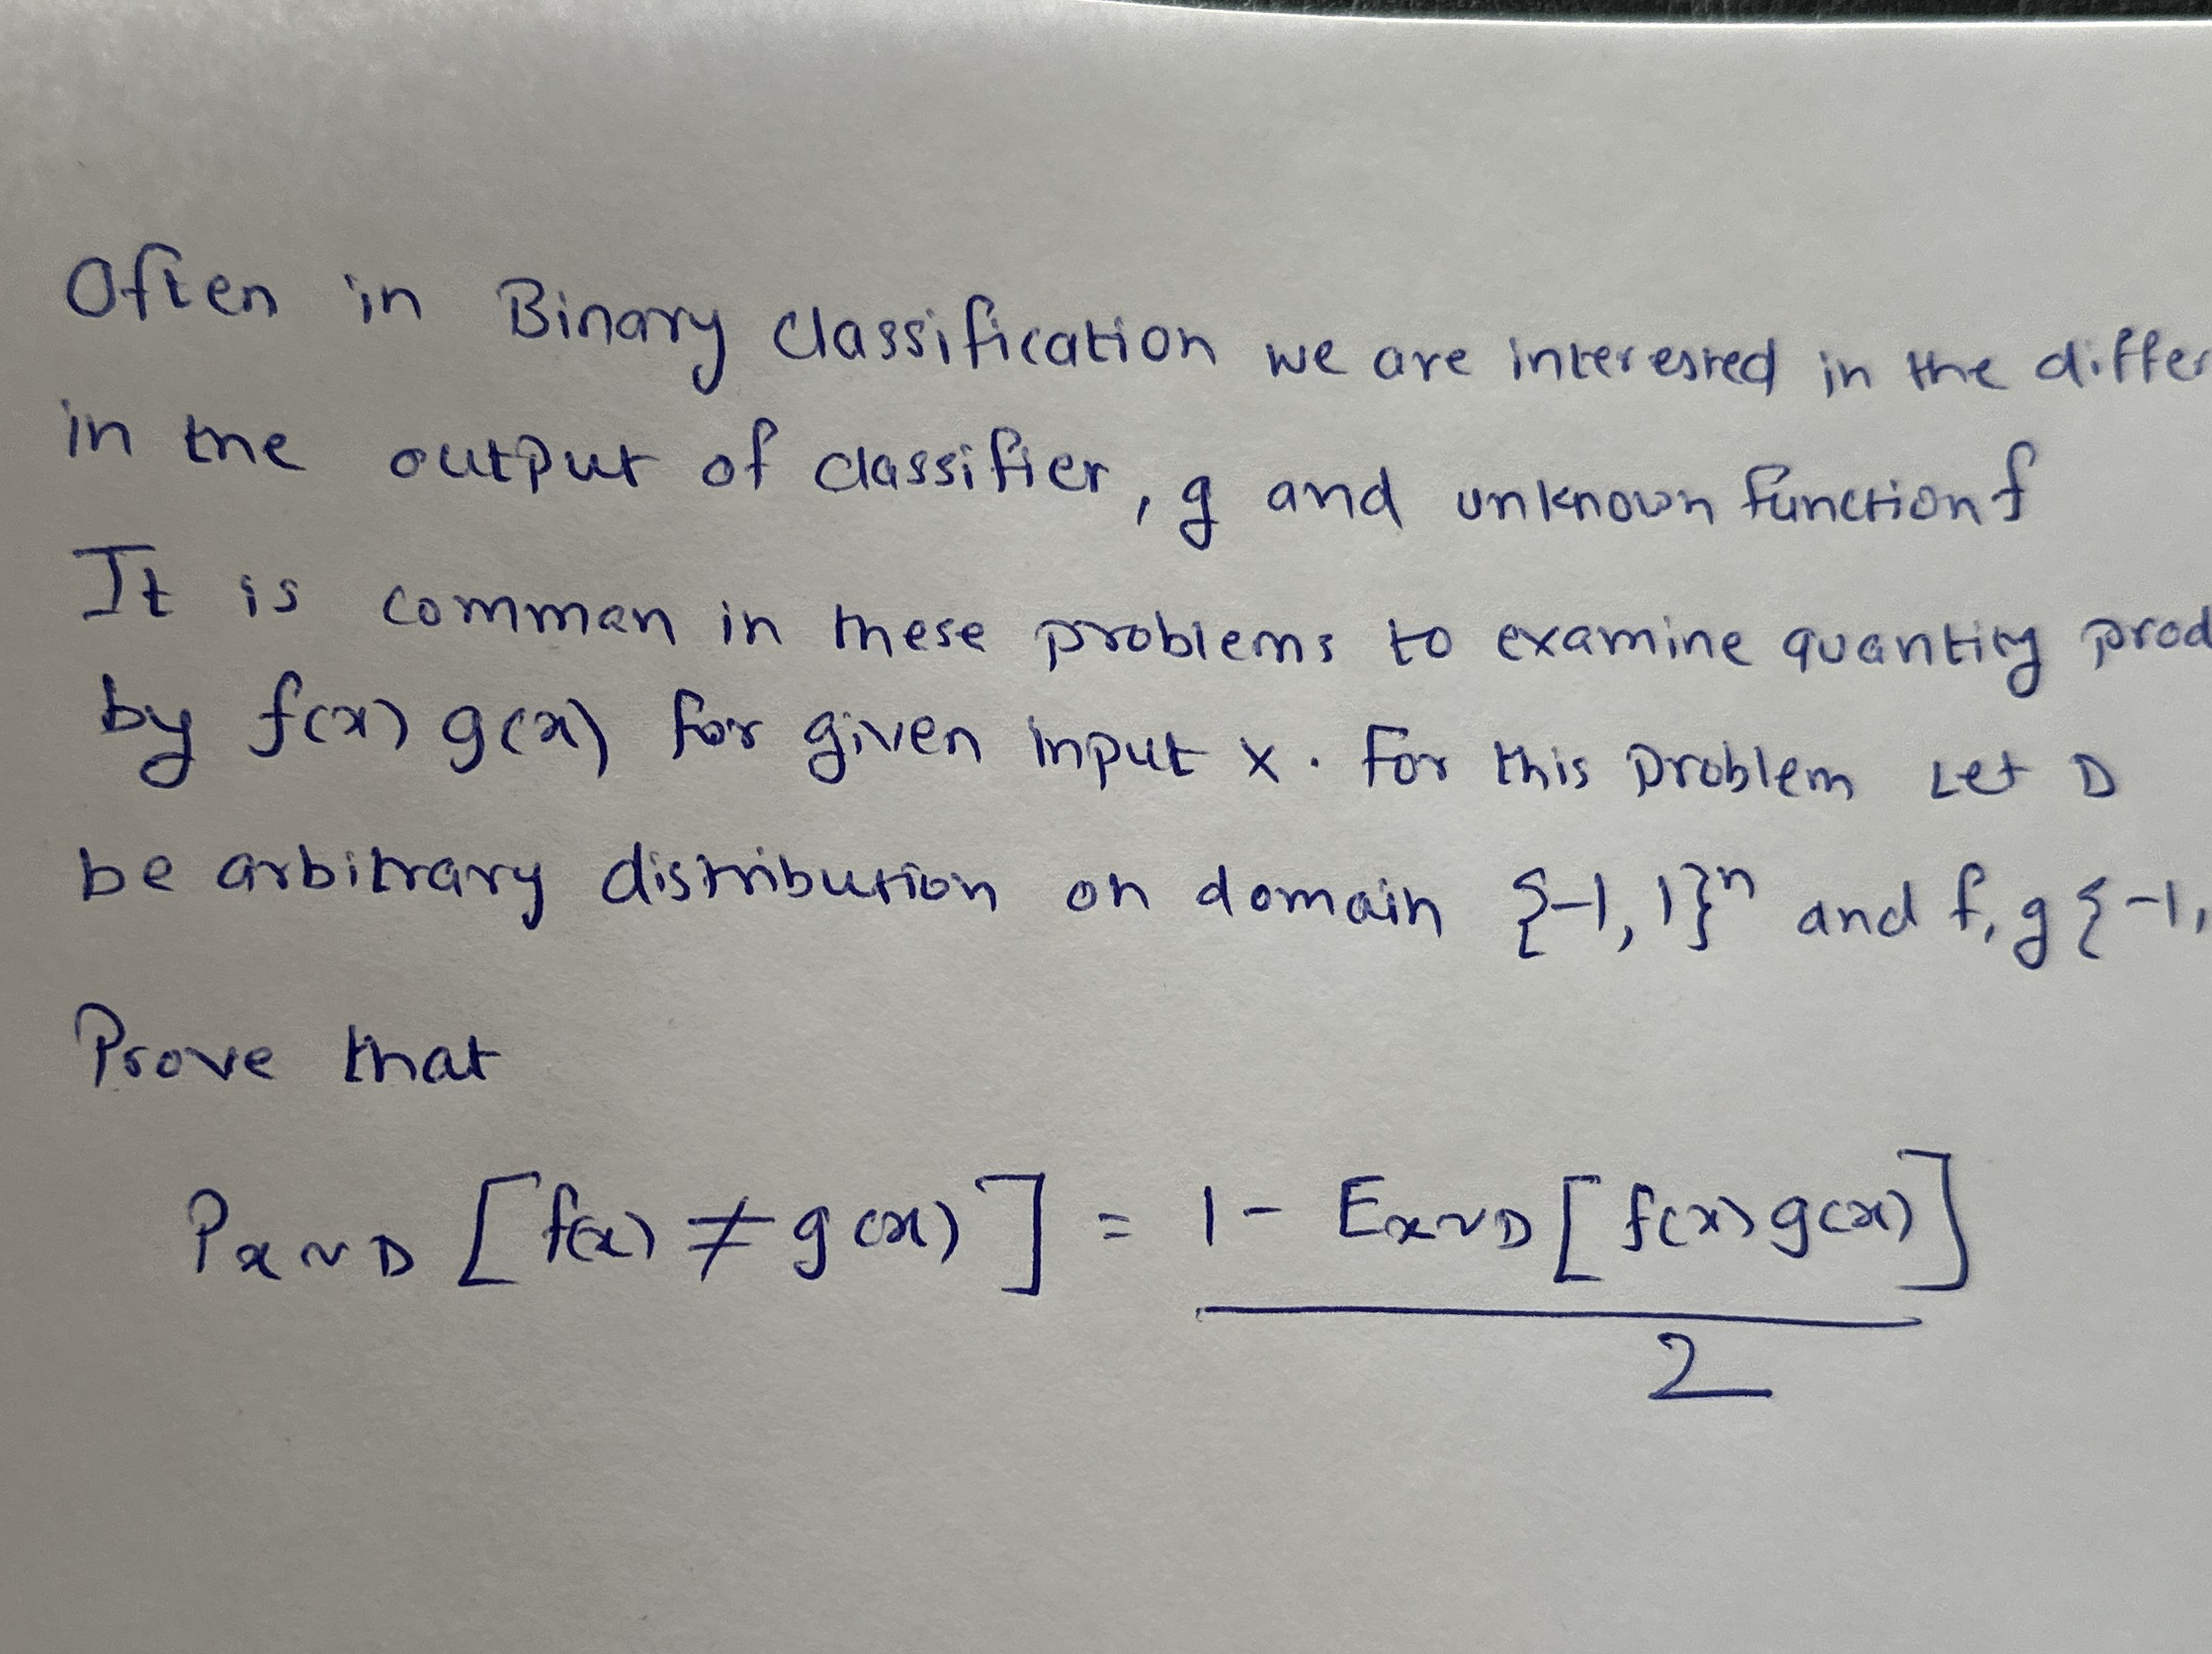 Often in Binary classification we are interested in the differ
in the output of classifier, g and unknown function f
It is common in these problems to examine quantity prod
by f(x) g(x) for given input x. For this problem Let D
be arbitrary distribution on domain {-1, 1}ⁿ and f, g {-1,
Prove that
Pₓ~D [f(x) ≠ g(x)] = 1 - Eₓ~D [f(x) g(x)]
2